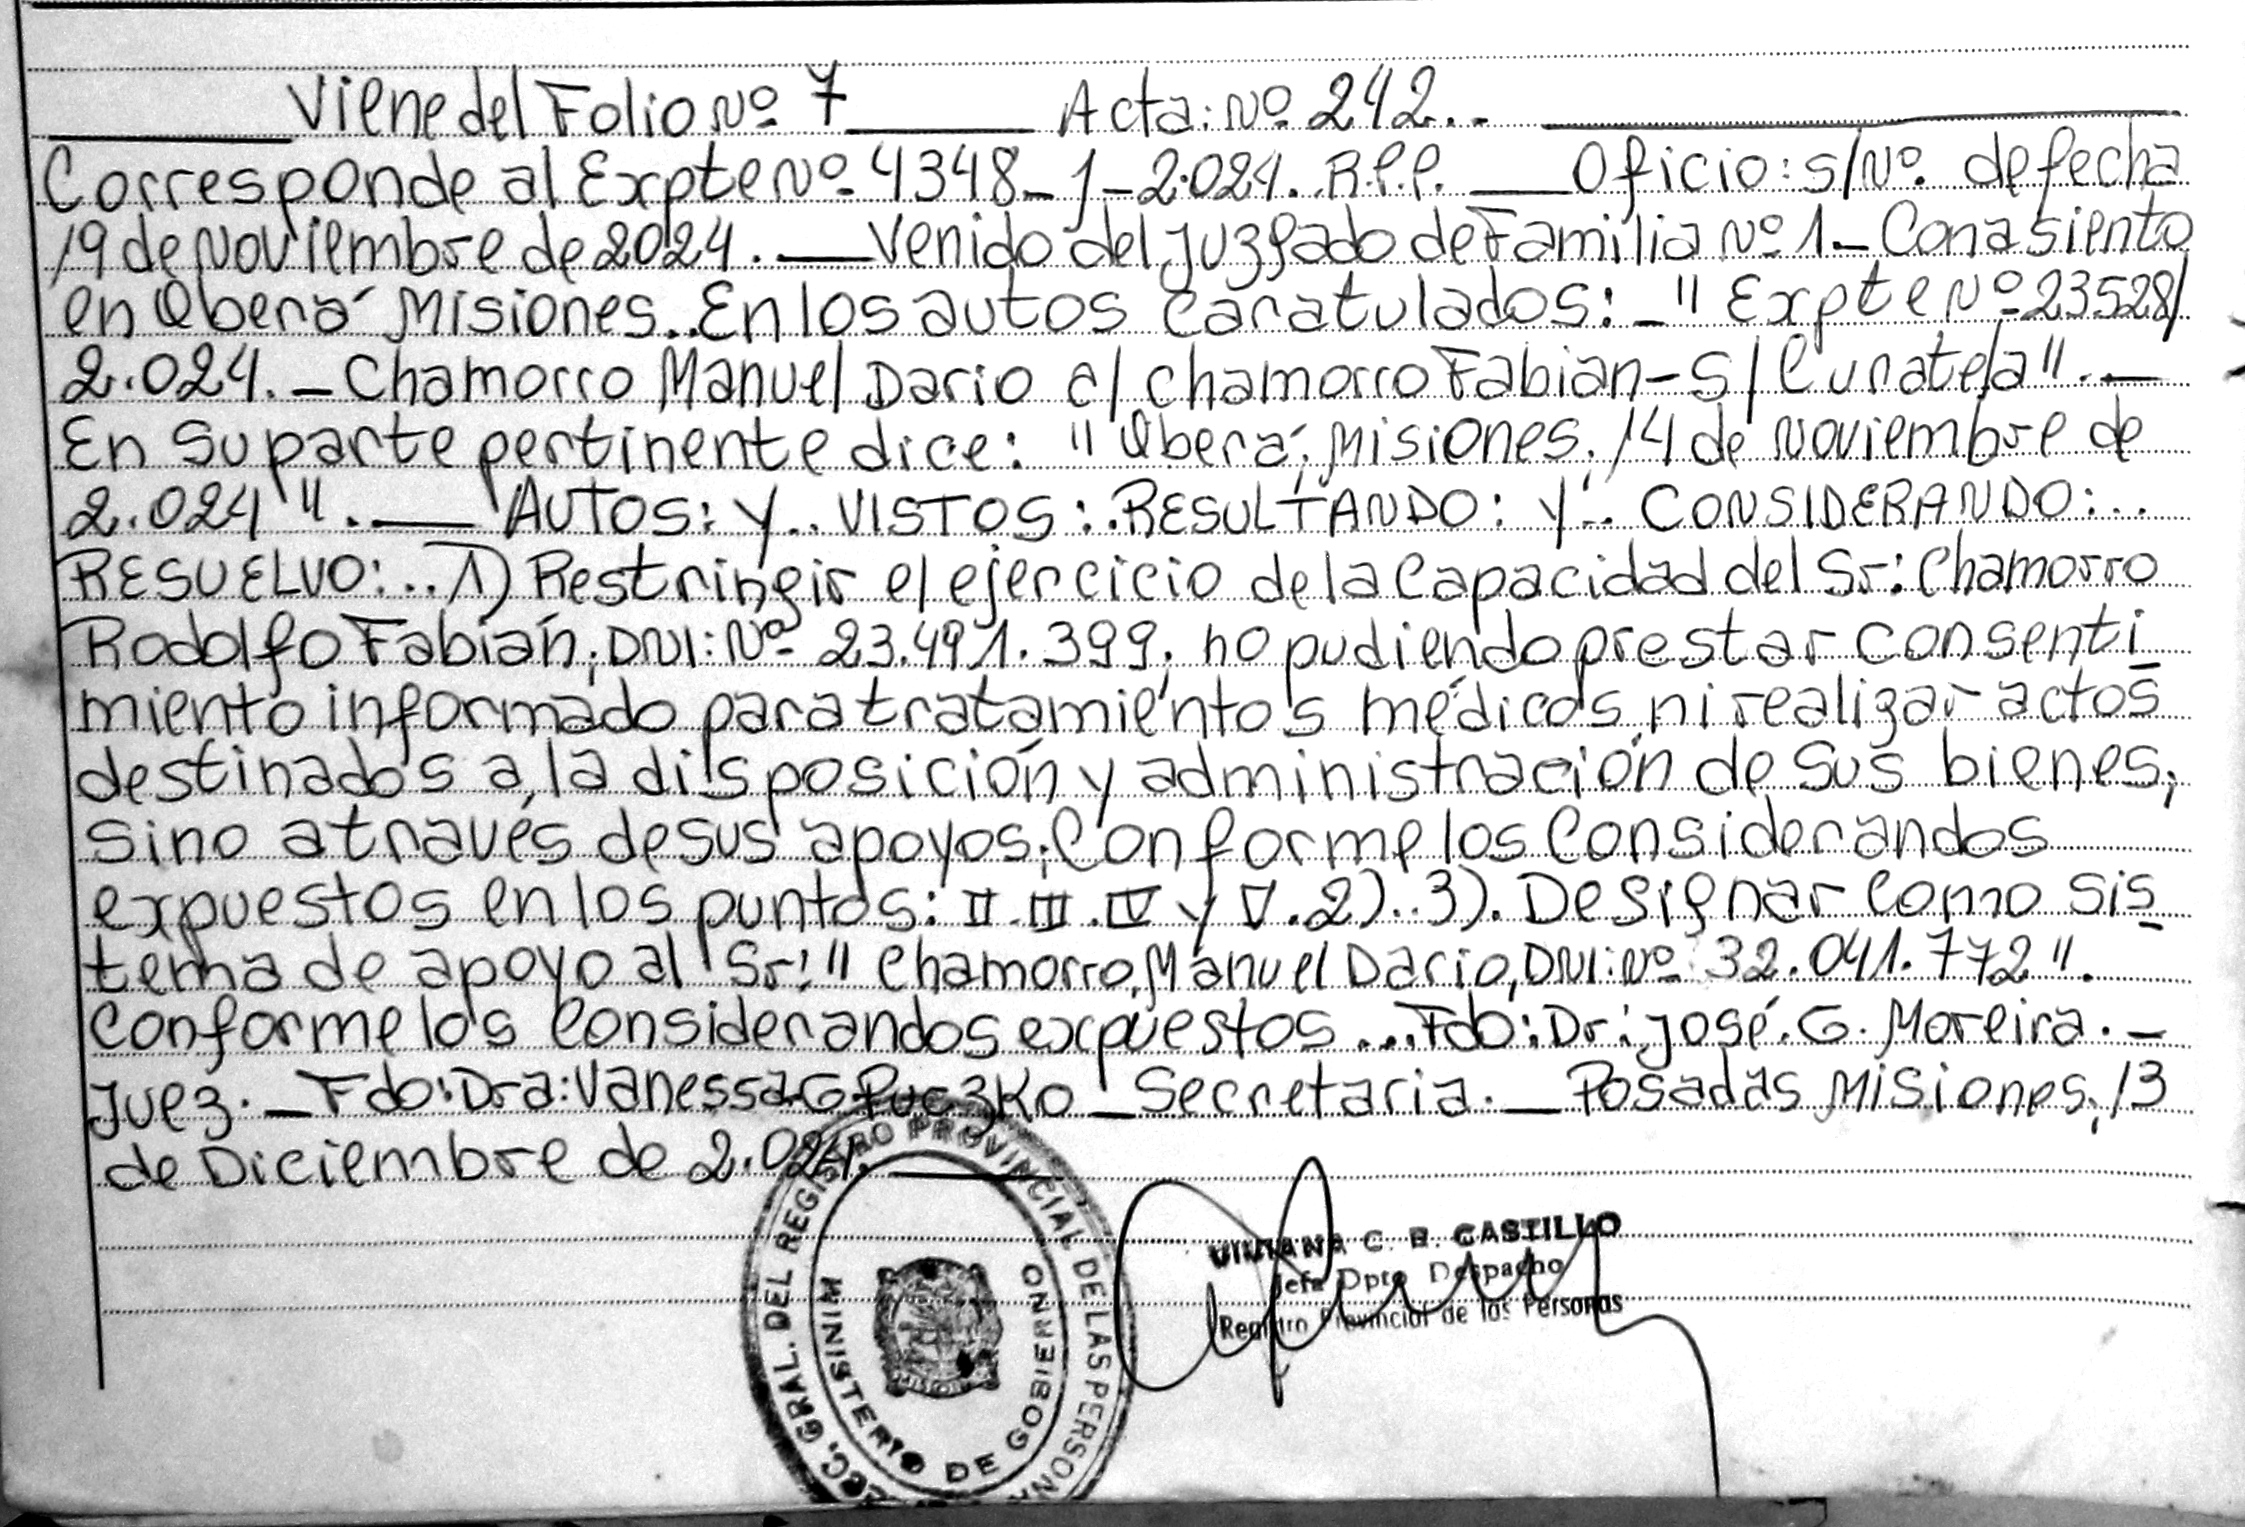 Viene del Folio Nº 7 Acta: Nº 242..
Corresponde al Expte Nº 4348-J-2.024. R.P.P. Oficio: S/Nº. de fecha
19 de Noviembre de 2024. Venido del Juzgado de Familia Nº 1_ Con asiento
en Oberá Misiones.. En los autos Caratulados: _ " Expte Nº 23528/
2.024. _ Chamorro Manuel Dario c/ Chamorro Fabian - S/ Curatela". _
En su parte pertinente dice: " Oberá, Misiones, 14 de Noviembre de
2.024 ". AUTOS: Y.. VISTOS: .RESULTANDO: Y.. CONSIDERANDO:..
RESUELVO: .. 1) Restringir el ejercicio de la Capacidad del Sr: Chamorro
Rodolfo Fabián, DNI: Nº 23.491.399, no pudiendo prestar consenti
miento informado para tratamientos médicos, ni realizar actos
destinados a, la disposición y administración de sus bienes,
sino a través de sus apoyos, Conforme los Considerandos
expuestos en los puntos: II. III. IV y V. 2)..3). Designar como sis
tema de apoyo al Sr: " Chamorro, Manuel Dario, DNI: Nº 32.041.772 ".
Conforme los Considerandos expuestos ... Fdo: Dr: José. G. Moreira. _
Juez. _ Fdo: Dra: Vanessa G Puczko _ Secretaria. _ Posadas Misiones, 13
de Diciembre de 2.024.
GRAL. DEL REGISTRO PROVINCIAL DE LAS PERSONA
MINISTERIO DE GOBIERNO
VIVIANA C. B. CASTILLO
Jefa Dpto Despacho
Registro Provincial de las Personas